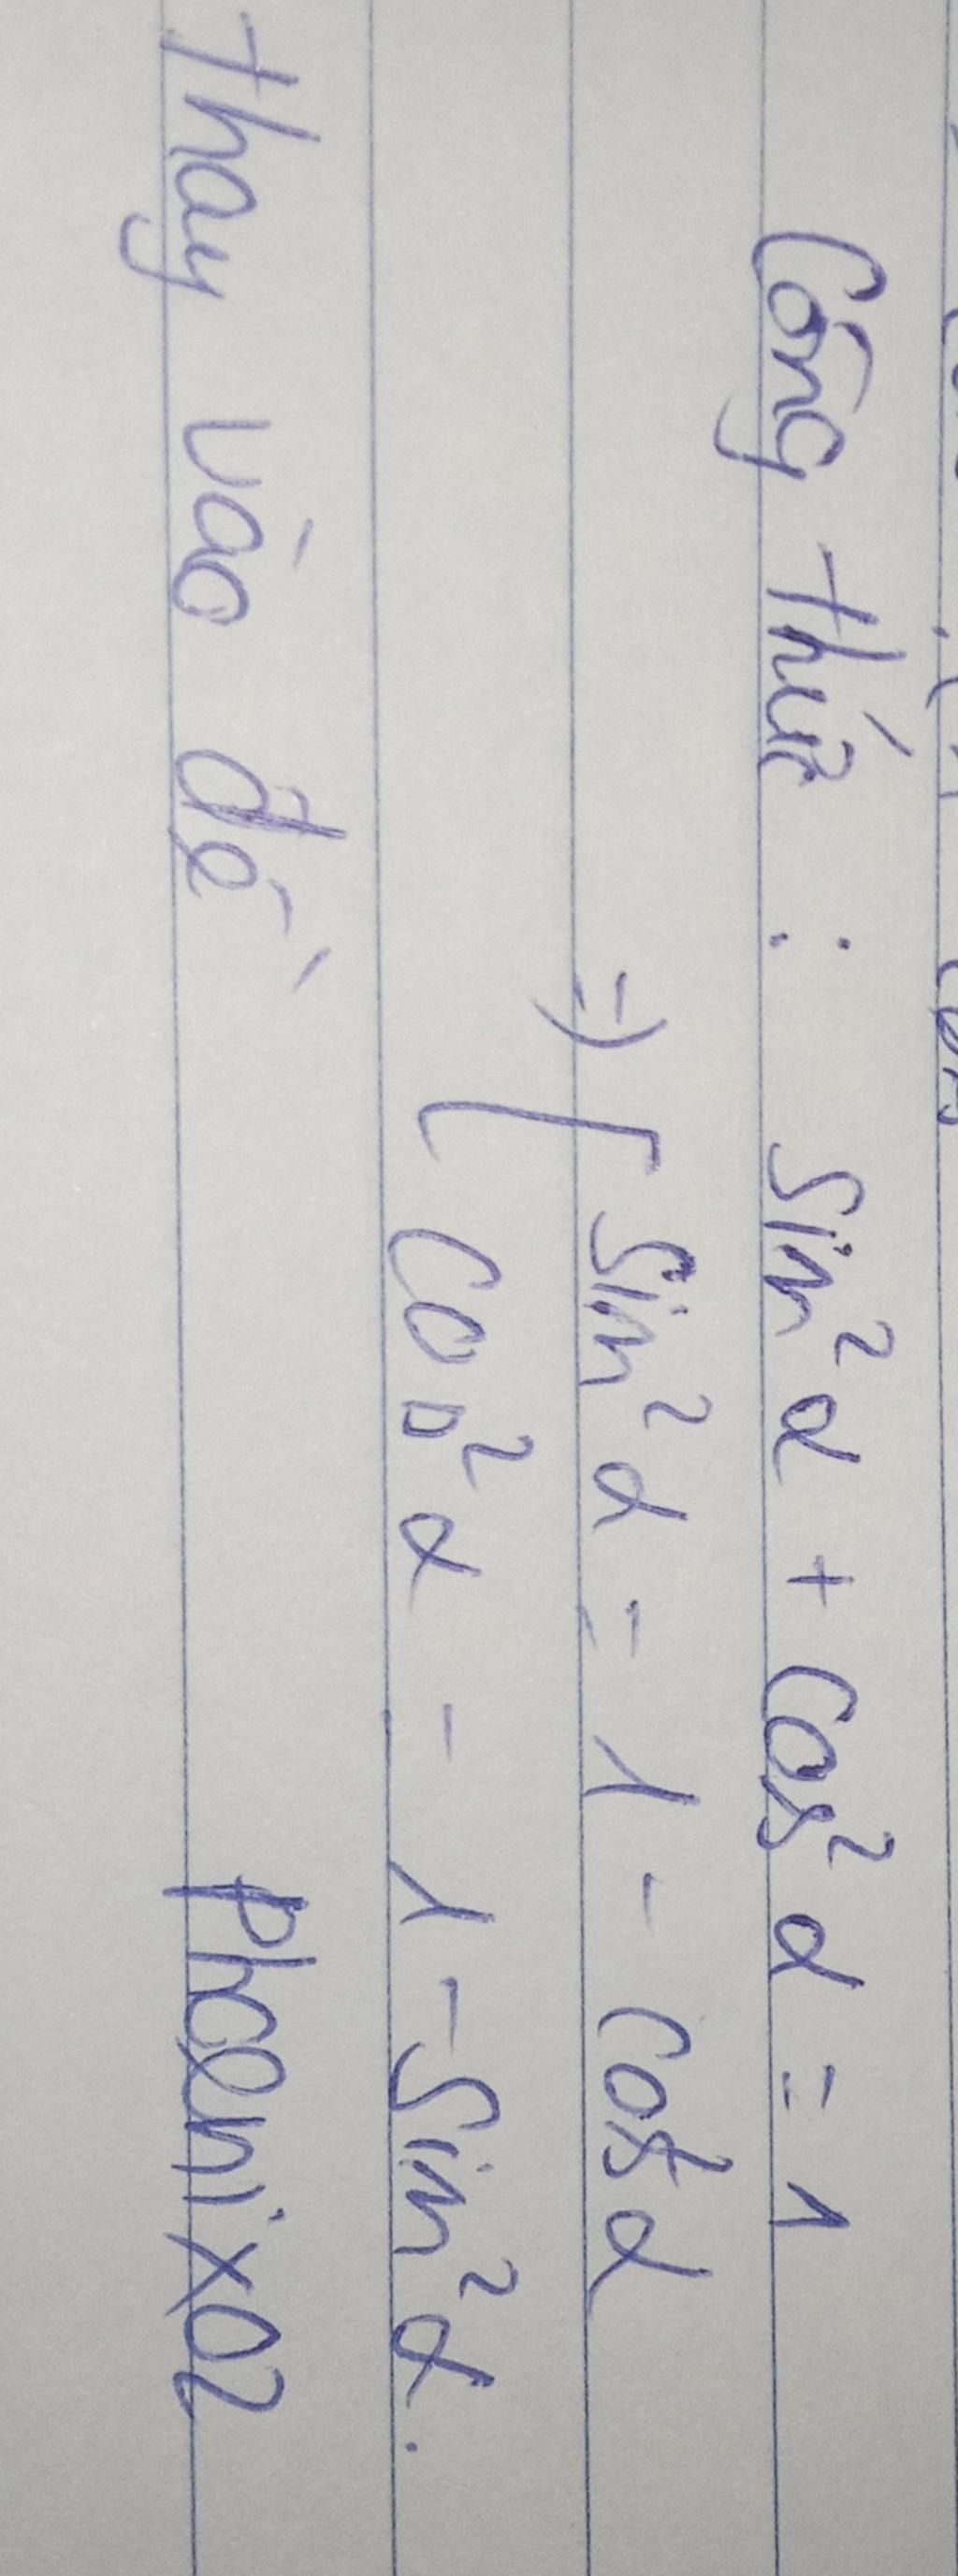 Công thức : Sin²α + cos²α = 1
=> [ Sin²α = 1 - cos²α
Cos²α = 1 - Sin²α.
Thay vào đề
Phoenix02